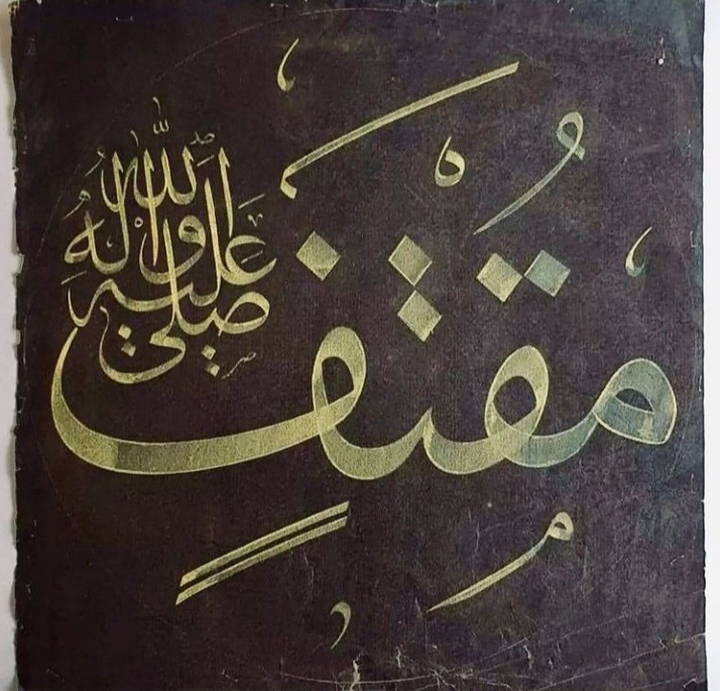 مُقْتَفٍ
صلى الله عليه واله